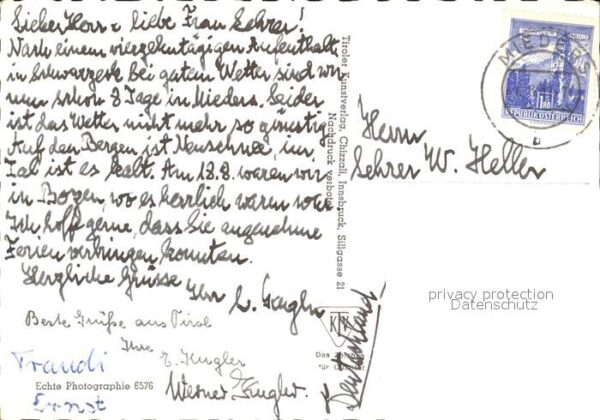 Lieber Herr u. liebe Frau Lehrer!
Nach einem vierzehntägigen Aufenthalt
in Schwarzeck bei gutem Wetter sind wir
nun schon 8 Tage in Mieders. Leider
ist das Wetter nicht mehr so günstig
Auf den Bergen ist Neuschnee, im
Tal ist es kalt. Am 18.8. waren wir
in Bozen, wo es herrlich warm war
Ich hoffe gerne, dass Sie angenehme
Ferien verbringen konnten.
Herzliche Grüsse
Ihr
Beste Grüße aus Tirol
Ihre
E. Kugler
Werner Kugler
Traudi
Ernst
Echte Photographie 6576
Tiroler Kunstverlag, Chizzali, Innsbruck, Sillgasse 21
Nachdruck verboten
KTK
Das
für
MIEDERS
1.80
REPUBLIK ÖSTERREICH
b
Herrn
Lehrer W. Heller
Deutschland
privacy protection
Datenschutz